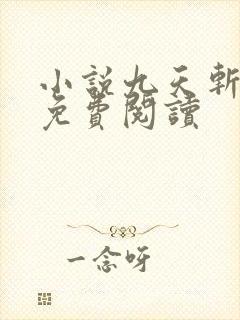 小說九天斬
免費閱讀
一念呀